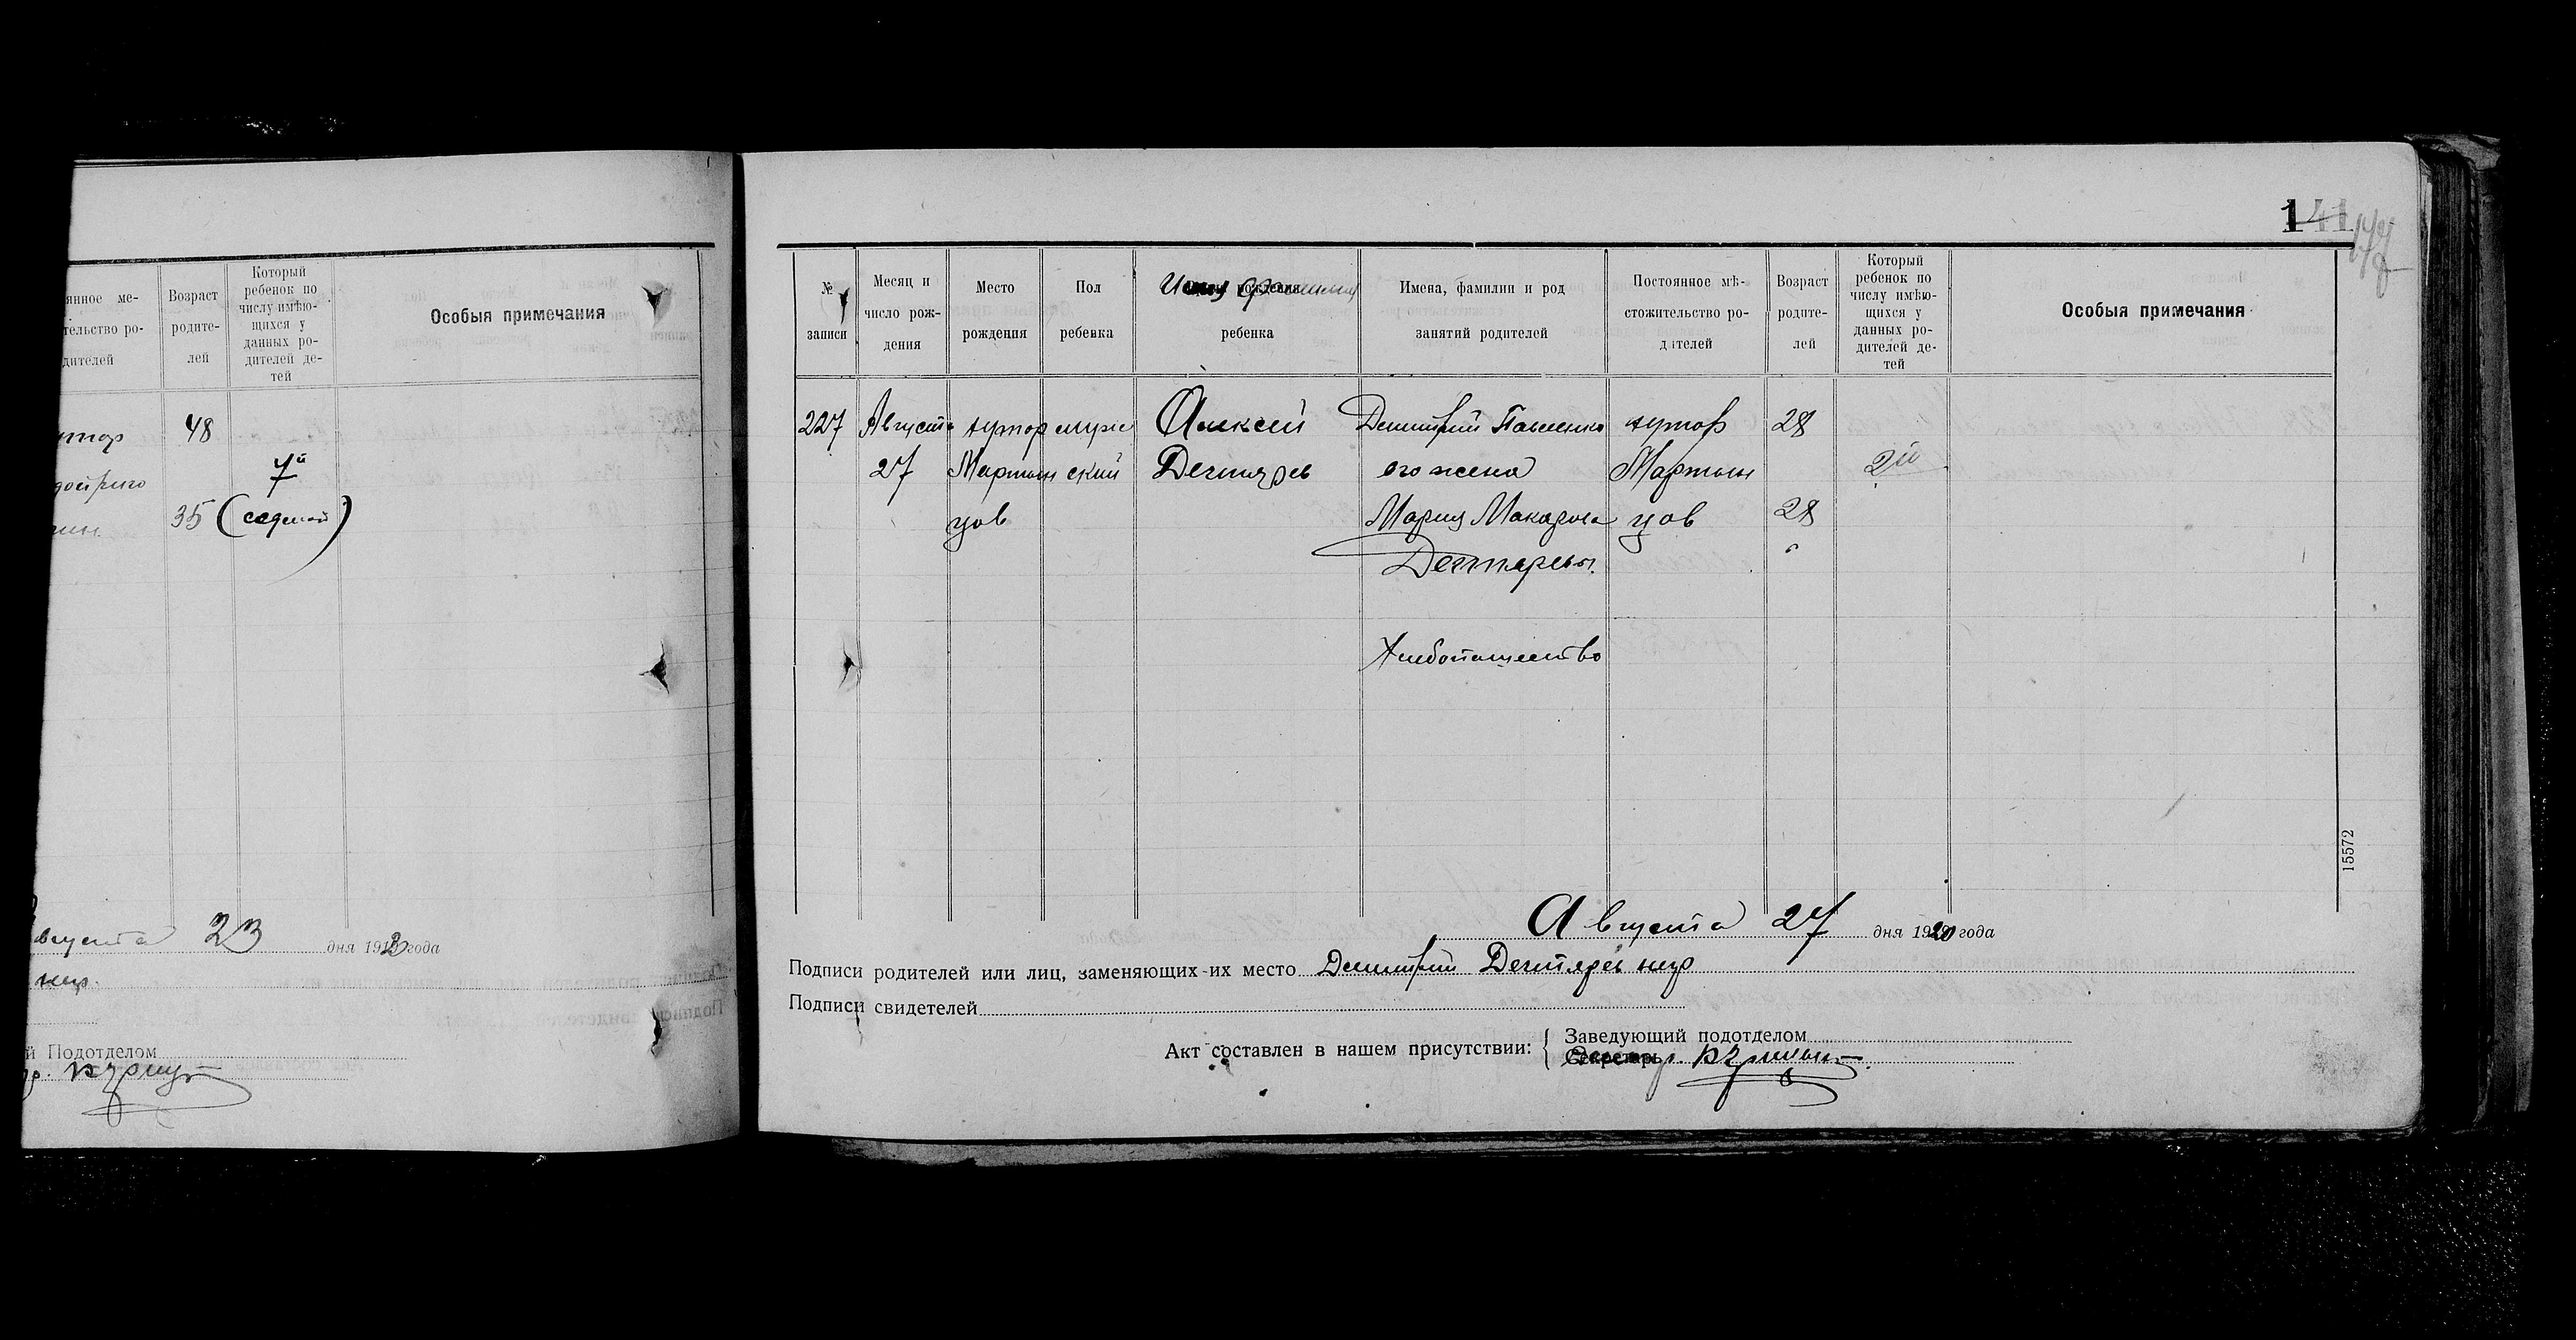 янное ме-
тельство ро-
дителей
Возраст
родите-
лей
Который
ребенок по
числу имѣю-
щихся у
данных ро-
дителей де-
тей
Особыя примечания
48
7й
35 (седмой)
августа 23 дня 1920 года
нгр.
й Подотделом
141
№
записи
Месяц и
число рож-
дения
Место
рождения
Пол
ребенка
Имя фамилия
ребенка
Имена, фамилии и род
занятий родителей
Постоянное мѣ-
стожительство ро-
дителей
Возраст
родите-
лей
Который
ребенок по
числу имѣю-
щихся у
данных ро-
дителей де-
тей
Особыя примечания
227 Августа хутор мужс Алексей Дмитрий Павленко хутор 28
27 Мартын ский Дегтярев его жена Мартын 2й
цов Мария Макарова цов 28
Дегтяревы
Хлебопашество
15572
Августа 27 дня 1920 года
Подписи родителей или лиц, заменяющих их место Дмитрий Дегтярев нгр
Подписи свидетелей
Акт составлен в нашем присутствии:
Заведующий подотделом
Секретарь